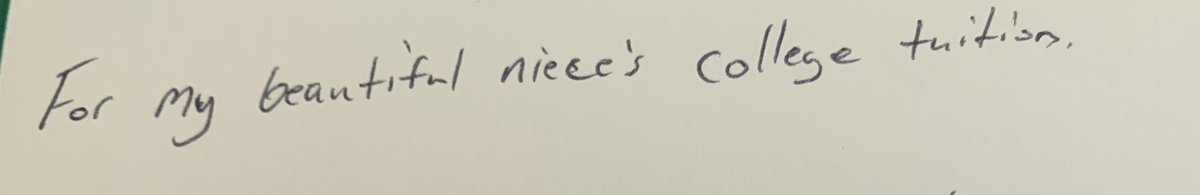 For my beautiful niece's college tuition.